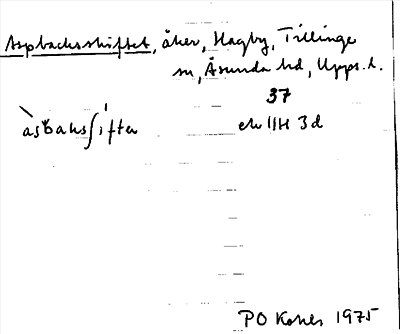 Aspbacksskiftet, åker, Hagby, Tillinge
sn, Åsunda hd, Upps. l.
37
àsbaksʃìften ek 11H 3d
PO Kohls 1975